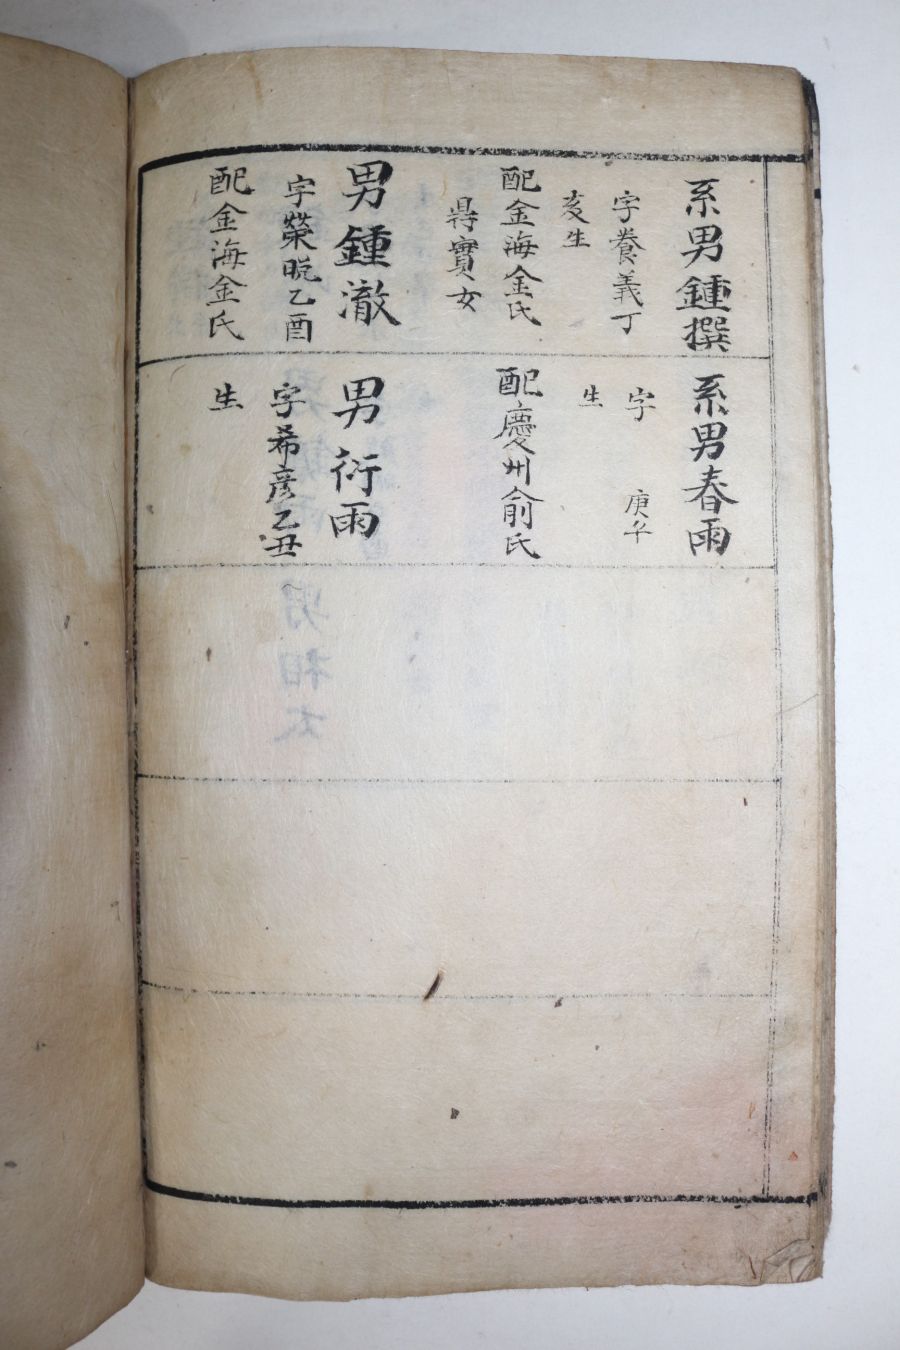 系男鍾撰
字養義丁
亥生
配金海金氏
得實女
男鍾澈
字榮晩乙酉
配金海金氏
系男春雨
字 庚午
生
配慶州俞氏
男衍雨
字希彦乙丑
生
男相太